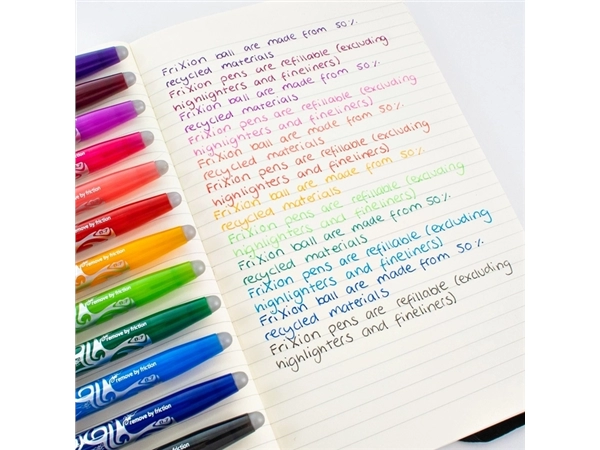 FriXion ball are made from 50%
recycled materials
FriXion pens are refillable (excluding
highlighters and fineliners)
FriXion ball are made from 50%
recycled materials
FriXion pens are refillable (excluding
highlighters and fineliners)
FriXion ball are made from 50%
recycled materials
FriXion pens are refillable (excluding
highlighters and fineliners)
FriXion ball are made from 50%
recycled materials
FriXion pens are refillable (excluding
highlighters and fineliners)
FriXion ball are made from 50%
recycled materials
FriXion pens are refillable (excluding
highlighters and fineliners)
FriXion ball are made from 50%
recycled materials
FriXion pens are refillable (excluding
highlighters and fineliners)
remove by friction
remove by friction
remove by friction
remove by friction
remove by friction
remove by friction
remove by friction